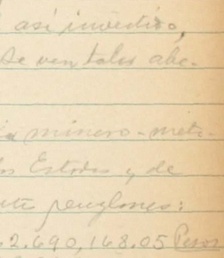 así invertido,
se van tales abe-
ia minero-metá-
los Estados y de
ente renglones:
2.690,168.05 Pesos